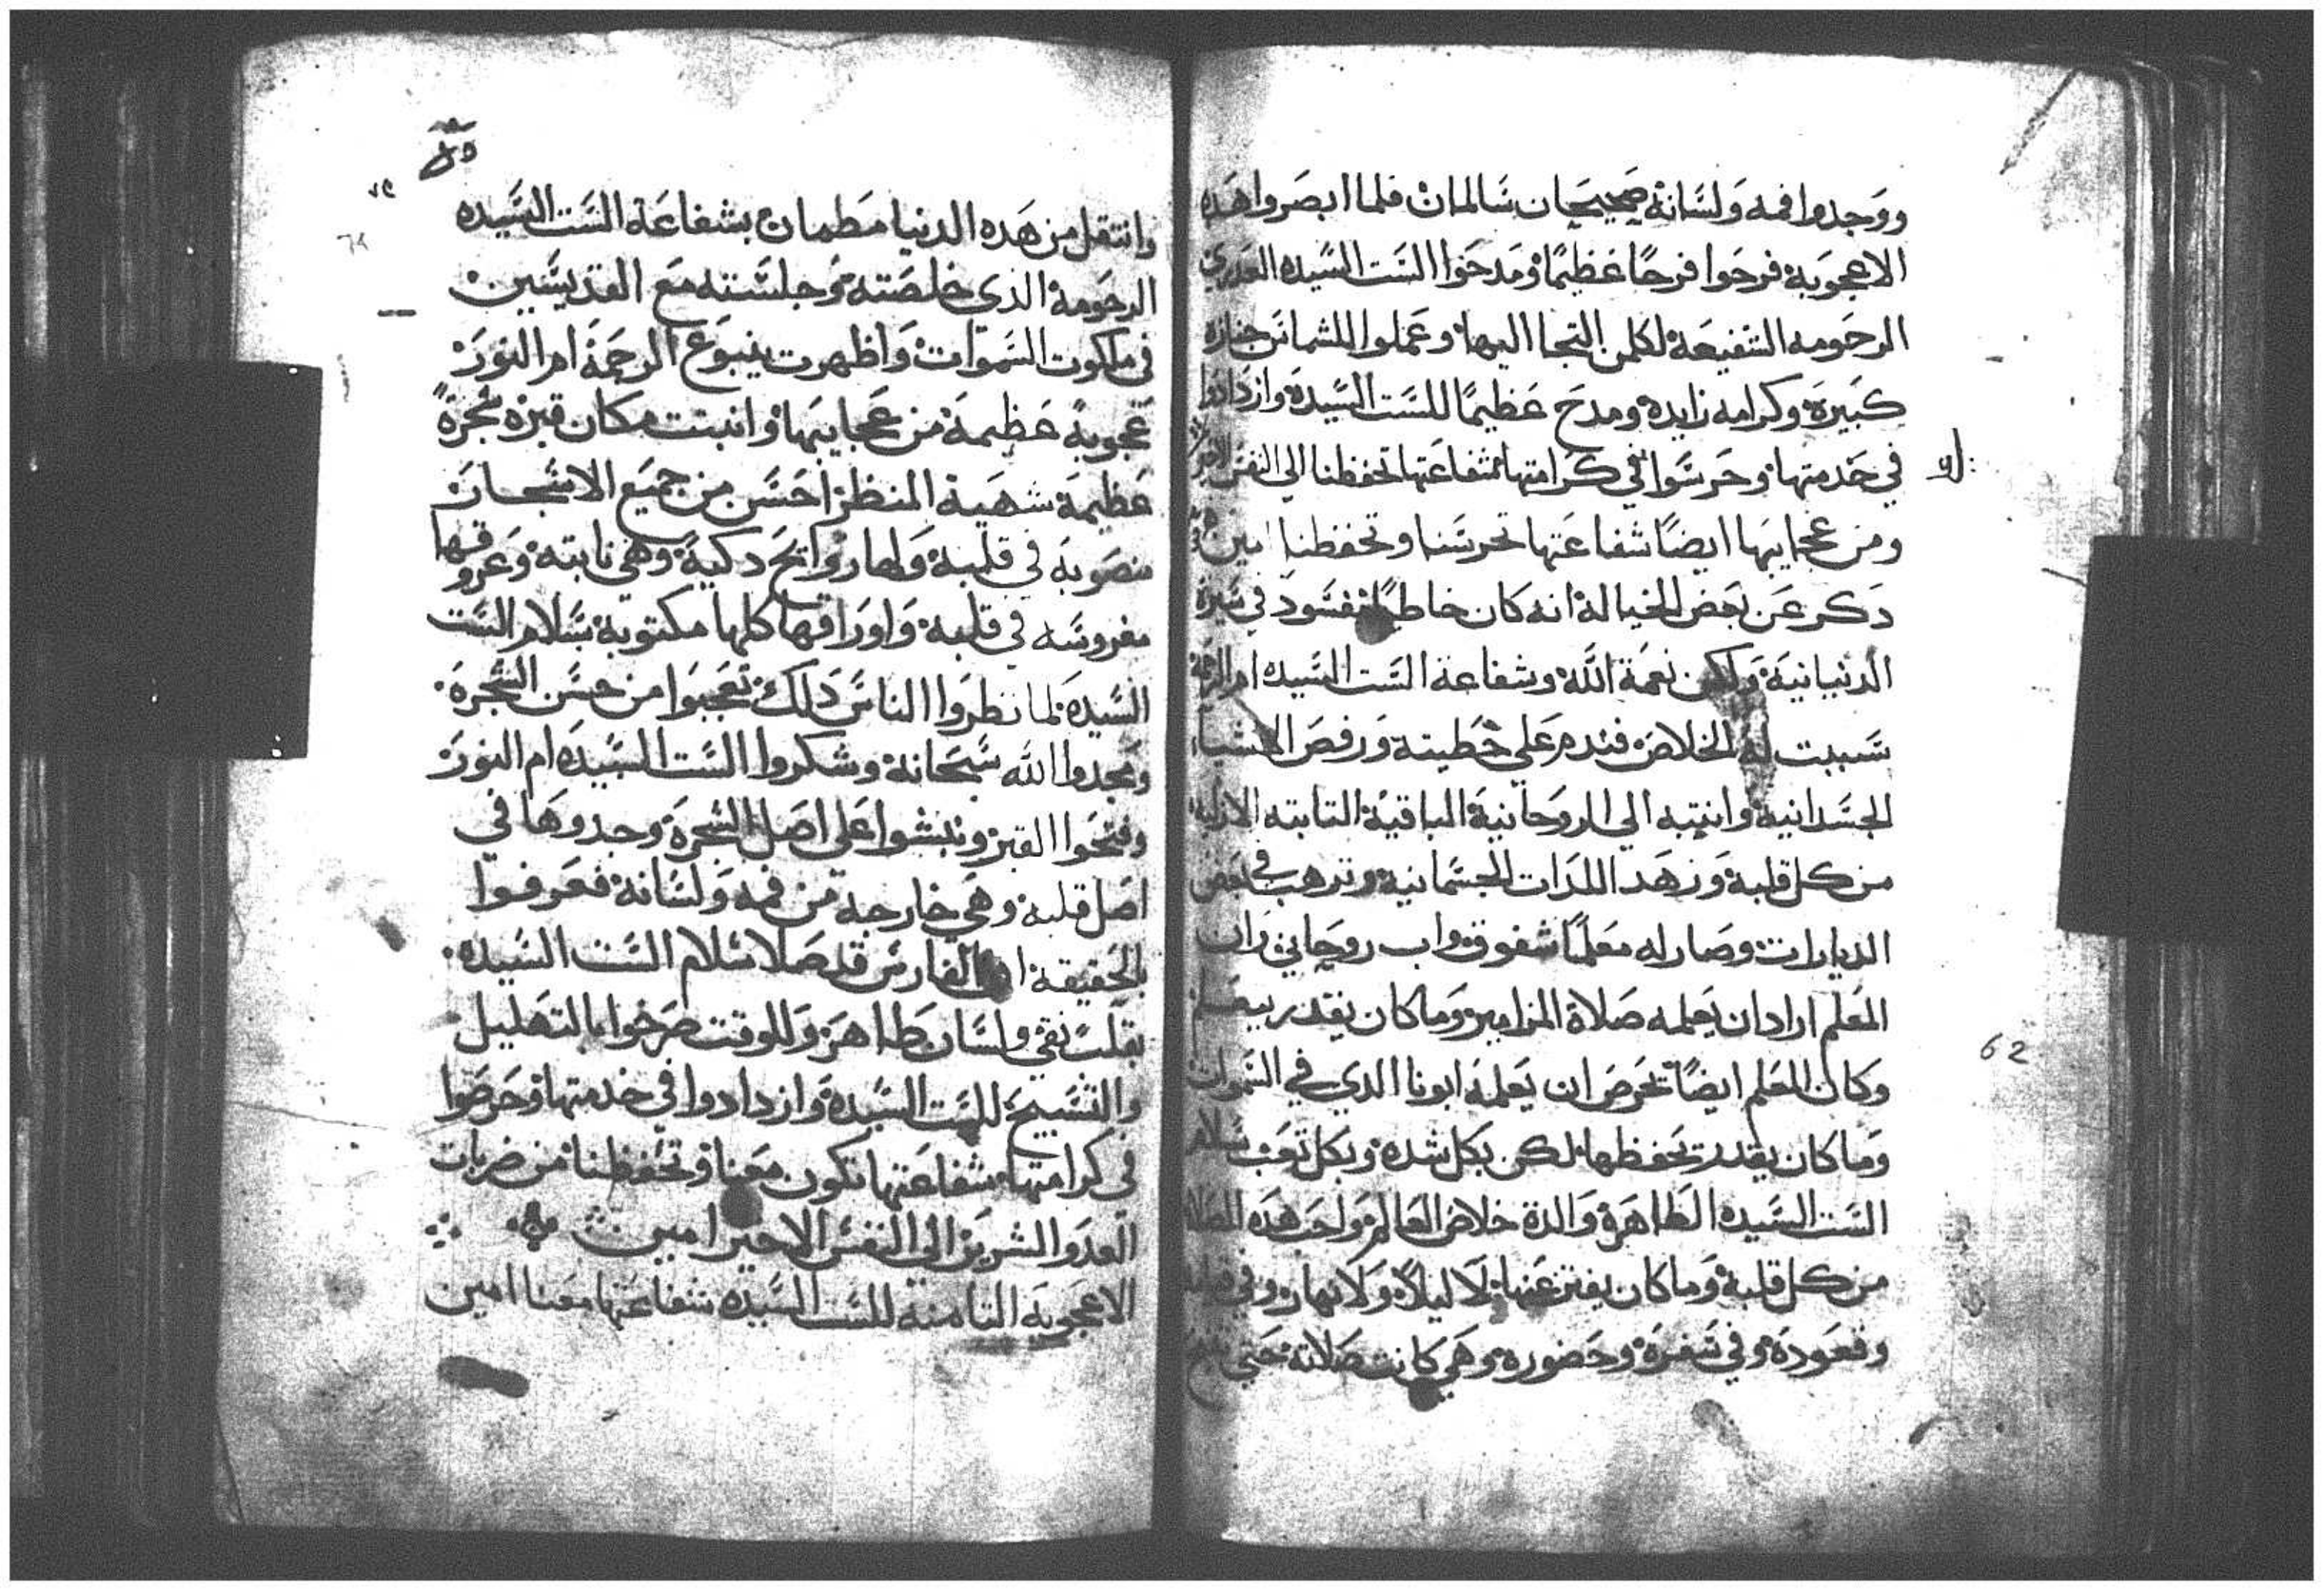 ووجدوا فمه ولسانه صحيحان سالمان فلما ابصروا هده
الاعجوبة فرحوا فرحًا عظيمًا ومدحوا الست السيده العدري
الرحومه الشفيعة لكلمن التجا اليها وعملوا للشماس جنازه
كبيرة وكرامه زايده ومدح عظيمًا للست السيدة وازدادوا
في خدمتها وحرسوا في كرامتها شفاعتها تحفظنا الي النفس الاخير
ومن عجايبها ايضًا شفاعتها تحرسنا وتحفظنا امين
دكر عن بعض الخيالة انه كان خاطيًا في سيرة
الدنيانية ولكن نعمة الله وشفاعة الست السيده ام الرحمة
سببت له الخلاص فندم علي خطيته ورفض الاشيا
الجسدانية وانتبه الي الروحانية الباقية التابته الازلية
من كل قلبه وزهد اللدات الجسمانية وترهب في بعض
الديارات وصار له معلمًا شفوق واب روحاني وان
المعلم اراد ان يعلمه صلاة المزامير وما كان يقدر يتعلم
وكان المعلم ايضًا تحرص ان يعلمه ابونا الدي في السموات
وما كان يقدر تحفظها لكن بكل شده وبكل تعب سلام
الست السيده الطاهرة والدة خلاص العالم ولحب هده الصلاة
من كل قلبه وما كان يفتر عنها لا ليلاً ولا نهار وفي قيامه
وقعوده وفي سفرة وحضوره وهي كانت صلاته حتي
وانتقل من هده الدنيا مطمان بشفاعة الست السيده
الرحومة الدي خلصته وجلسته مع القديسين
في ملكوت السموات واظهرت ينبوع الرحمة ام النور
عجوبة عظيمة من عجايبها وانبتت مكان قبره شجرة
عظيمة شهية المنظر احسن من جميع الاشجار
منصوبة في قلبه ولها روايح دكية وهي نابته وعروقها
مغروسه في قلبه واوراقها كلها مكتوبة بسلام الست
السيدة لما نظروا الناس دلك تعجبوا من حسن الشجرة
ومجدوا الله سبحانه وشكروا الست السيده ام النور
وفتحوا القبر ونبشوا علي اصل الشجرة وجدوها في
اصل قلبه وهي خارجة من فمه ولسانه فعرفوا
بالحقيقة ان الفارس قد صلا سلام الست السيده
بقلب نقي ولسان طاهر وللوقت صرخوا بالتهليل
والتسبيح للست السيدة وازدادوا في خدمتها وحرصوا
في كرامتها شفاعتها تكون معنا وتحفظنا من ضربات
العدو الشرير الي النفس الاخير امين
الاعجوبه التامنه للست السيده شفاعتها معنا امين
62